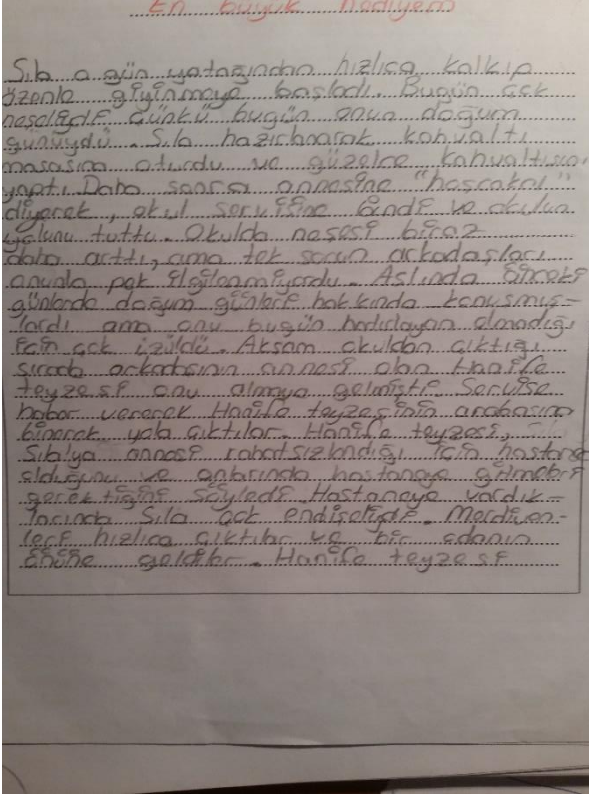 En büyük hediyem
Sıla o gün yatağından hızlıca kalkıp
özenle giyinmeye başladı. Bugün çok
neşeliydi çünkü bugün onun doğum
günüydü. Sıla hazırlanarak kahvaltı
masasına oturdu ve güzelce kahvaltısını
yaptı. Daha sonra annesine "hoşcakal"
diyerek, okul servisine bindi ve okulun
yolunu tuttu. Okulda neşesi biraz
daha arttı, ama tek sorun arkadaşları
onunla pek ilgilenmiyordu. Aslında önceki
günlerde doğum günleri hakkında konuşmuş-
lardı ama onu bugün hatırlayan olmadığı
için çok üzüldü. Akşam okuldan çıktığı
sırada arkadaşının annesi olan Hanife
teyzesi onu almaya gelmişti. Servise
haber vererek Hanife teyzesinin arabasına
binerek yola çıktılar. Hanife teyzesi,
Sıla'ya annesi rahatsızlandığı için hastane
olduğunu ve onlarında hastaneye gitmeleri
gerektiğini söyledi. Hastaneye vardık-
larında Sıla çok endişeliydi. Merdiven-
leri hızlıca çıktılar ve bir odanın
önüne geldiler. Hanife teyzesi